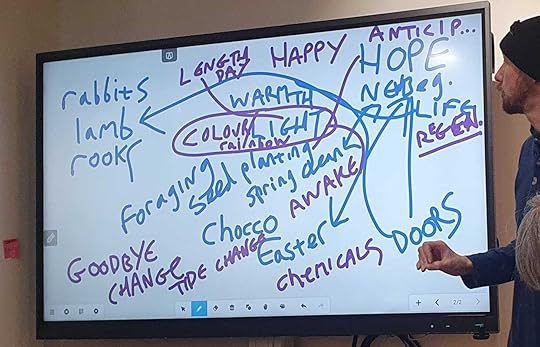 LENGTH DAY
HAPPY
ANTICIP...
HOPE
rabbits
lamb
rooks
WARMTH
COLOUR LIGHT
rainbow
NEW Beg.
LIFE
REGEN.
Foraging
Seed planting
Spring clean
AWAKE
Chocco
Easter
DOORS
GOODBYE
CHANGE
TIDE CHANGE
Chemicals
2/2